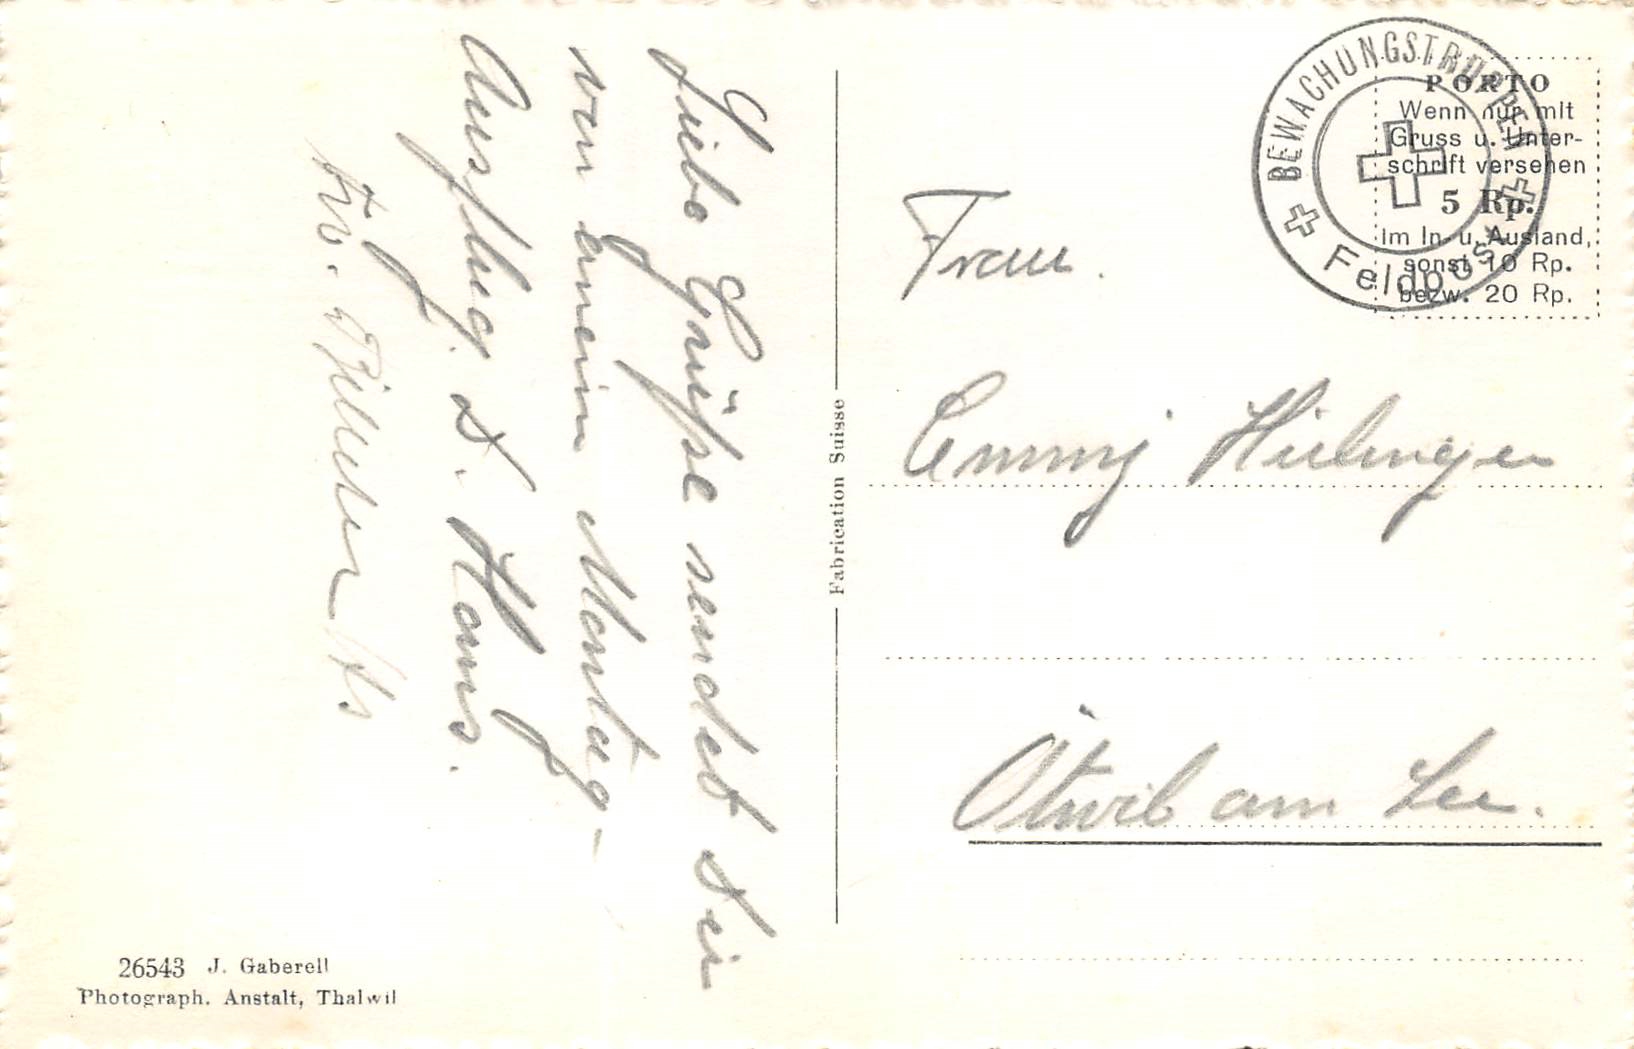 Liebe Grüße sendet Dir
von einem Montag-
Ausflug. D. Hans.
26543 J. Gaberell
Photograph. Anstalt, Thalwil
Fabrication Suisse
BEWACHUNGSTRUPPEN
Feldpost
PORTO
Wenn nur mit
Gruss u. Unter-
schrift versehen
5 Rp.
Im In- u. Ausland,
sonst 10 Rp.
bezw. 20 Rp.
Frau.
Emmy
Ötwil am See.